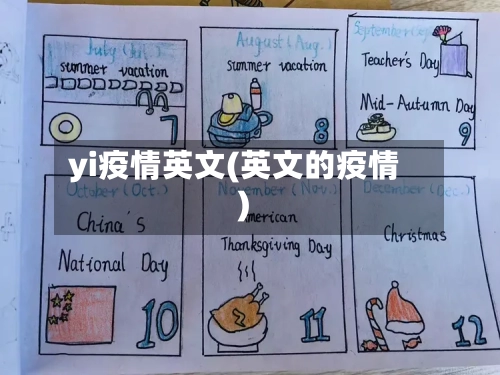 July (Jul.)
summer vacation
7
August (Aug.)
summer vacation
8
September (Sep.)
Teacher's Day
Mid-Autumn Day
9
yi疫情英文(英文的疫情
)
October (Oct.)
China's
National Day
10
November (Nov.)
American
Thanksgiving Day
11
December (Dec.)
Christmas
12